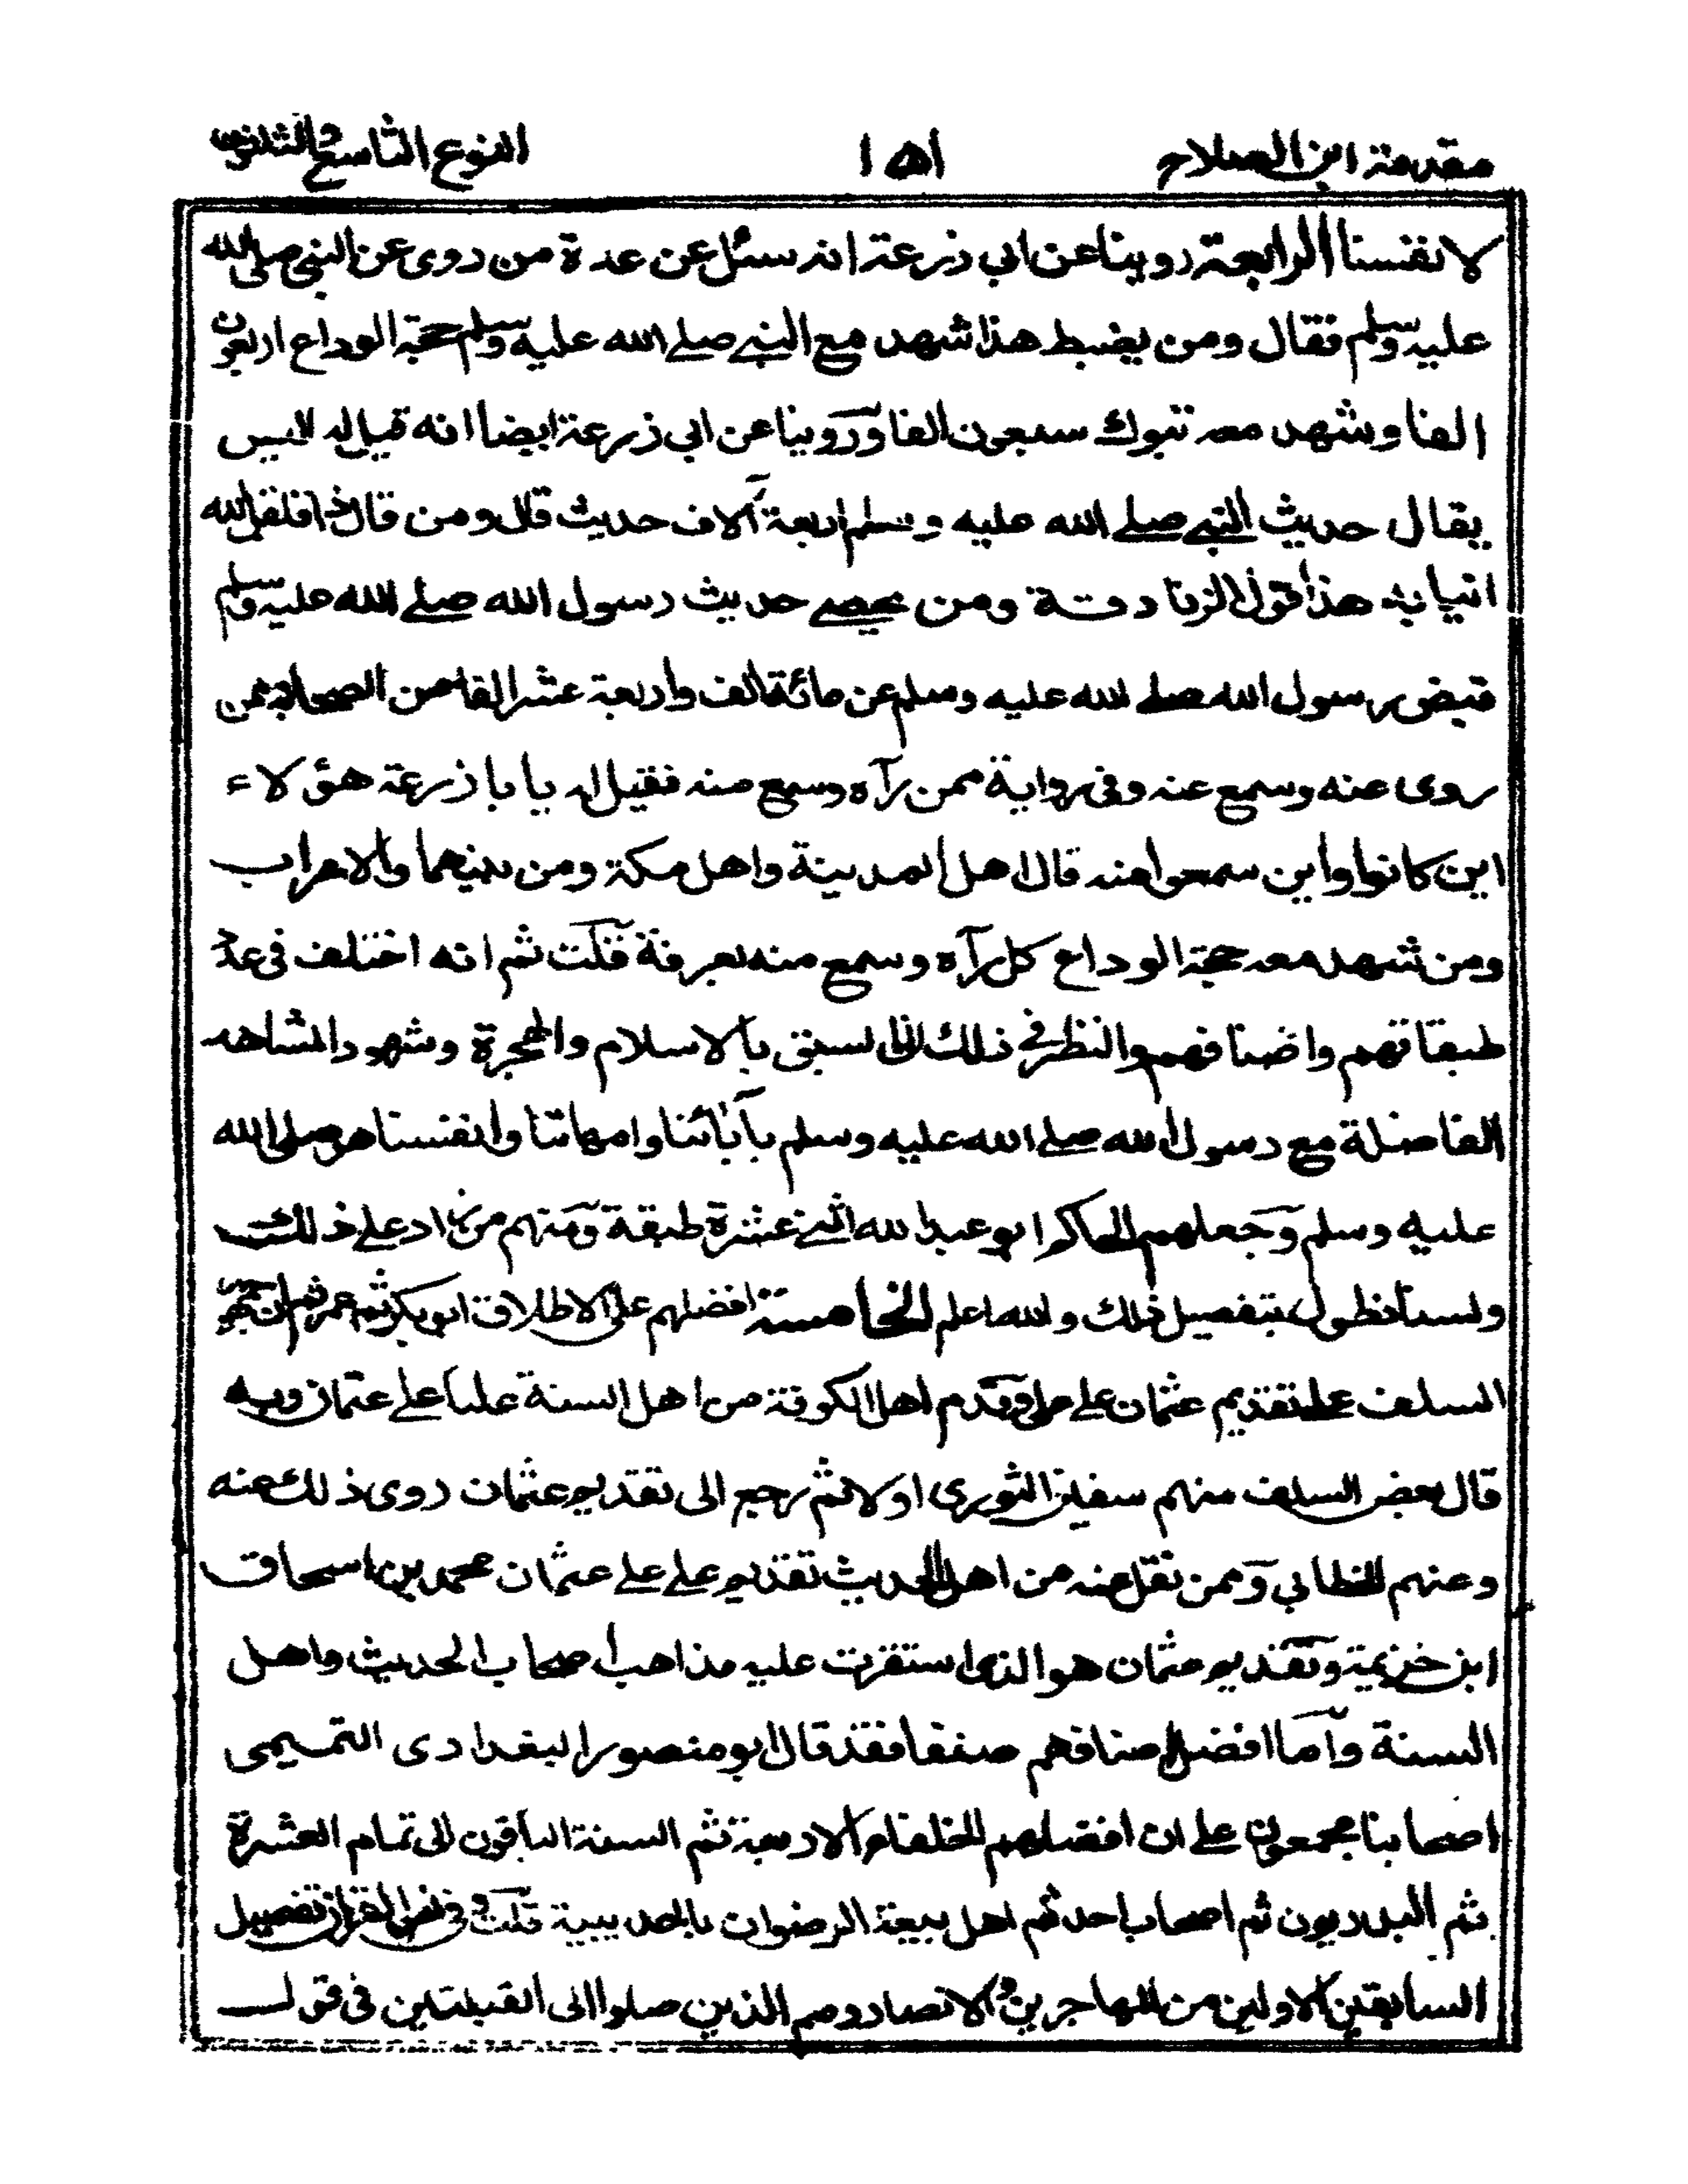 مقدمة ابن الصلاح ١٥١ النوع التاسع والثلاثون
لانفسنا الرابعة روينا عن ابي زرعة انه سئل عن عدة من روى عن النبي صلى الله
عليه وسلم فقال ومن يضبط هذا شهد مع النبي صلى الله عليه وسلم حجة الوداع اربعون
الفا وشهد معه تبوك سبعون الفا وروينا عن ابي زرعة ايضا انه قيل له اليس
يقال حديث النبي صلى الله عليه وسلم اربعة آلاف حديث قال ومن قال ذا قلقل الله
انيابه هذا قول الزنادقة ومن يحصى حديث رسول الله صلى الله عليه وسلم
قبض رسول الله صلى الله عليه وسلم عن مائة الف واربعة عشر الفا من الصحابة ممن
روى عنه وسمع عنه وفى رواية ممن رآه وسمع منه فقيل له يا با زرعة هؤلاء
اين كانوا واين سمعوا منه قال اهل المدينة واهل مكة ومن بينهما والاعراب
ومن شهد معه حجة الوداع كل رآه وسمع منه بعرفة قلت ثم انه اختلف فى عدد
طبقاتهم واصنافهم والنظر فى ذلك الى السبق بالاسلام والهجرة وشهود المشاهد
الفاضلة مع رسول الله صلى الله عليه وسلم بآبائنا وامهاتنا وانفسنا هو صلى الله
عليه وسلم وجعلهم الحاكم ابو عبد الله اثنى عشرة طبقة ومنهم من زاد على ذلك
ولسنا نطول بتفصيل ذلك والله اعلم الخامسة افضلهم على الاطلاق ابو بكر ثم عمر ثم ان جمهور
السلف على تقديم عثمان على على وقدم اهل الكوفة من اهل السنة عليا على عثمان وبه
قال بعض السلف منهم سفين الثورى اولا ثم رجع الى تقديم عثمان روى ذلك عنه
وعنهم الخطابي وممن نقل عنه من اهل الحديث تقديم على على عثمان محمد بن اسحاق
ابن خزيمة وتقديم عثمان هو الذى استقرت عليه مذاهب اصحاب الحديث واهل
السنة واما افضل اصنافهم صنفا فقد قال ابو منصور البغدادى التميمى
اصحابنا مجمعون على ان افضلهم الخلفاء الاربعة ثم الستة الباقون الى تمام العشرة
ثم البدريون ثم اصحاب احد ثم اهل بيعة الرضوان بالحديبية قلت وفى نص القران تفصيل
السابقين الاولين من المهاجرين والانصار وهم الذين صلوا الى القبلتين فى قول